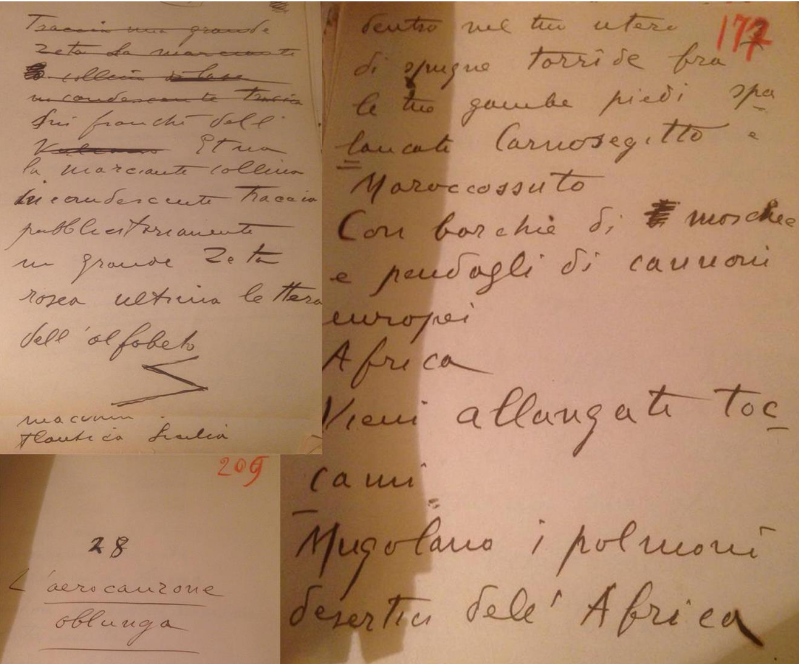 Traccia una grande
Zeta la marciante
collina
incandescente traccia
Sui fianchi dell'
Vulcano Etna
la marciante collina
incandescente traccia
pubblicitariamente
un grande Zeta
rosea ultima lettera
dell'alfabeto
Sicilia
209
28
L'aerocanzone
oblunga
177
dentro nel tuo utero
di spugne torride fra
le tue gambe piedi spa
lancate Carnosegitto e
Maroccossuto
Con borchie di moschee
e pendagli di cannoni
europei
Africa
Vieni allungati toc
cami
Mugolano i polmoni
desertici dell'Africa